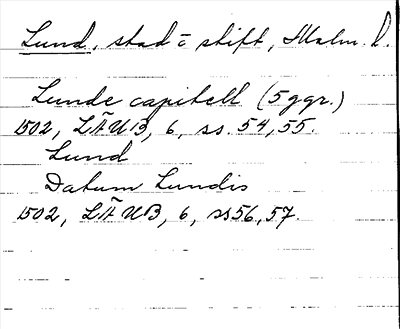 Lund, stad o stift, Malm. l.
Lunde capitell (5 ggr.)
1502, LÄUB, 6, ss. 54, 55.
Lund
Datum Lundis
1502, LÄUB, 6, ss 56, 57.